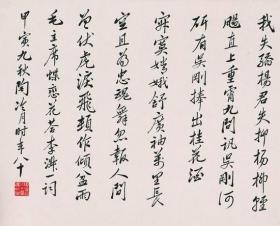 我失驕楊君失柳楊柳輕
颺直上重霄九問訊吳剛何
所有吳剛捧出桂花酒
寂寞嫦娥舒廣袖萬里長
空且為忠魂舞忽報人間
曾伏虎淚飛頓作傾盆雨
毛主席蝶戀花答李淑一詞
甲寅九秋陶冷月時年八十